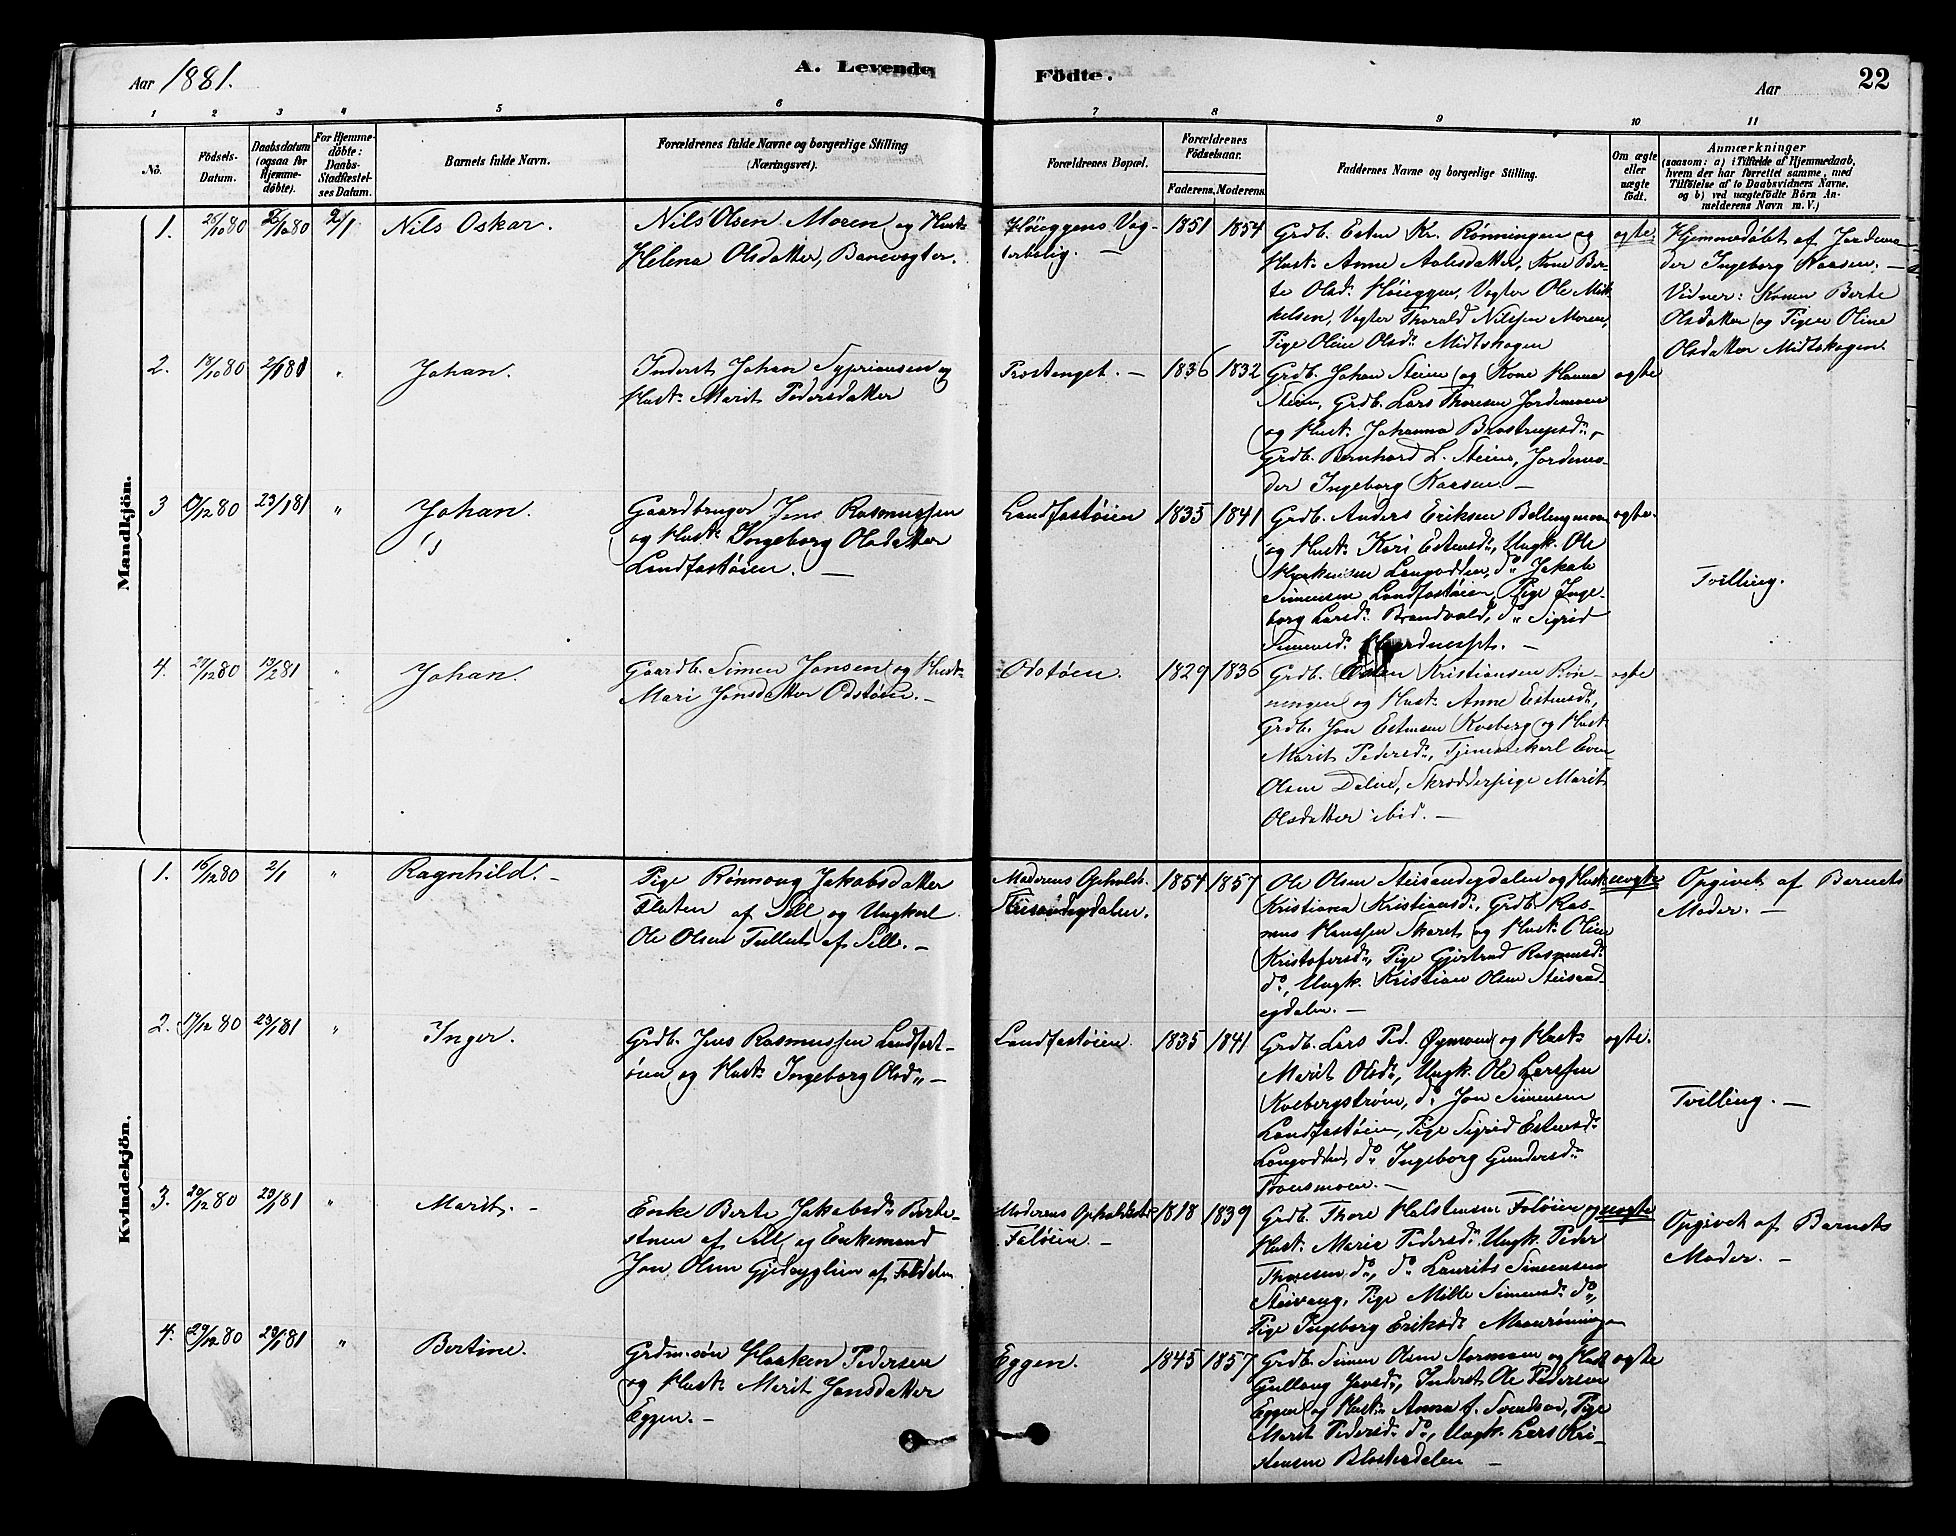 Aar 1881.
A. Levende
Födte.
Aar
22
1 2 3 4 5 6 7 8 9 10 11
No.
Födsels-
Datum.
Daabsdatum
(ogsaa for
Hjemme-
döbte).
For Hjemme-
döbte:
Daabs-
Stadfæstel-
ses Datum.
Barnets fulde Navn.
Forældrenes fulde Navne og borgerlige Stilling
(Næringsvei).
Forældrenes Bopæl.
Forældrenes
Födselsaar.
Faderens. Moderens.
Faddernes Navne og borgerlige Stilling.
Om ægte
eller
uægte
födt.
Anmærkninger
(saasom: a) i Tilfælde af Hjemmedaab,
hvem der har forrettet samme, med
Tilföielse af to Daabsvidners Navne,
og b) ved uægtefödte Börn An-
melderens Navn m. V.)
Mandkjön.
1. 25/10 80 2/1
Nils Oskar.
Nils Olsen Moren og Hust.
Helena Olsdatter, Banevogter.
Høieggens Vog-
terbolig. —
1851 1854
Grdb. Esten Kr. Rønningen og
Hust. Anne Aalesdatter, Kone Ber-
te Olsd. Høieggen, Vogter Ole Mik-
kelsen, Vogter Thorald Nilssen Moren,
Pige Oline Olsd. Midtskogen
ægte.
Hjemmedøbt af Jordmo-
der Ingeborg Kaasen. —
Vidner: Konen Berte
Olsdatter og Pigen Oline
Olsdatter Midtskogen.
2. 18/10 80 2/1 81 "
Johan.
Inderst Johan Sypriansen og
Hust. Marit Pedersdatter
Prestenget. —
1836 1832
Grdb. Johan Steien og Kone Hanna
Steien, Grdb. Lars Thoresen Jordemoen
og Hust. Johanna Brostrupsd., —
Grdb. Bernhard L. Steien, Jordemo-
der Ingeborg Kaasen. —
ægte
3 17/12 80 23/1 81 "
Johan.
Gaardbruger Jens Rasmussen
og Hust. Ingeborg Olsdatter
Landfastøien. —
Landfastøien
1835 1841
Grdb. Anders Eriksen Bellingmoen
og Hust. Kari Estensd., Ungk. Ole
Haakensen Langodden, do. Jakob
Simensen Landfastøien, Pige Inge-
borg Larsd. Brandvold, do. Sigrid
Simensd.
ægte.
Tvilling.
4. 27/12 80 13/2 81 "
Johan.
Gaardb. Simen Jonsen og Hust.
Mari Jonsdatter Odstøen. —
Odstøen.
1829 1836
Grdb. Esten Kristiansen Røn-
ningen og Hust. Anne Estensd.,
Grdb. Jon Estensen Koeberg og Hust.
Marit Pedersd., Tjenestekarl Even
Olsen Dalen, Skrædderpige Marit
Olsdatter ibid. —
ægte
Kvindekjön.
1. 16/12 80 2/1 "
Ragnhild. —
Pige Rønnaug Jakobsdatter
Flaten af Sell og Ungkarl
Ole Olsen Tullut af Sell. —
Moderens Opholdst.
Streitsandegdalen.
1854 1857
Ole Olsen Steisandegdalen og Hust.
Kristiana Kristiansd., Grdb. Ras-
mus Hanssen Skaret og Hust. Oline
Kristofersd., Pige Gjertrud Rasmusd.
do., Ungk. Kristian Olsen Steisand-
egdalen. —
uægte
Opgivet af Barnets
Moder. —
2. 17/12 80 23/1 81 "
Inger.
Grdb. Jens Rasmussen Landfast-
øien og Hust. Ingeborg Olsd. —
Landfastøien.
1835 1841
Grdb. Lars Ped. Øymoen og Hust.
Marit Olsd., Ungk. Ole Larssen
Koebergstrøen, do. Jon Simensen
Landfastøien, Pige Sigrid Estensd.
Langodden, do. Ingeborg Gundersd.
Tronsmoen. —
ægte.
Tvilling. —
3. 20/12 80 23/1 81 "
Marit. —
Enke Berte Jakobsd. Berte-
stuen af Sell og Enkemand
Jon Olsen Gjedryglien af Foldalen
Moderens Opholdsst.
Faløien. —
1818 1839
Grdb. Thore Halstensen Faløien og
Hust. Marie Pedersd. Ungk. Peder
Thoresen do., do. Laurits Simensen
Steivang, Pige Mille Simensd. do.,
Pige Ingeborg Eriksd. Moanrøningen
uægte
Opgivet af Barnets
Moder. —
4. 29/12 80 23/1 81 "
Bertine.
Grdm.søn Haaken Pedersen
og Hust. Marit Jonsdatter
Eggen. —
Eggen.
1845 1857
Grdb. Simen Olsen Stormoen og Hust.
Gullaug Jonsd., Inderst Ole Pedersen
Eggen og Hust. Anna f. Svendsen, Pige
Marit Pedersd. do., Ungk. Lars Kri-
stensen Blesterdalen —
ægte